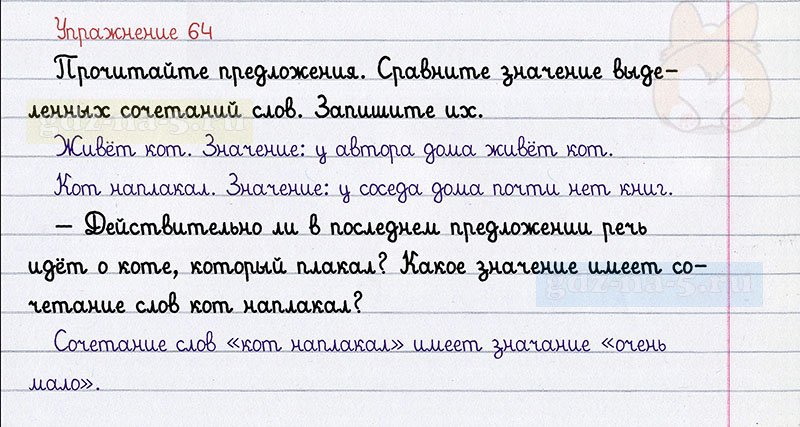 Упражнение 64
Прочитайте предложения. Сравните значение выде-
ленных сочетаний слов. Запишите их.
gdz-na-5.ru
Живёт кот. Значение: у автора дома живёт кот.
Кот наплакал. Значение: у соседа дома почти нет книг.
– Действительно ли в последнем предложении речь
идёт о коте, который плакал? Какое значение имеет со-
gdz-na-5.ru
четание слов кот наплакал?
Сочетание слов «кот наплакал» имеет значание «очень
мало».